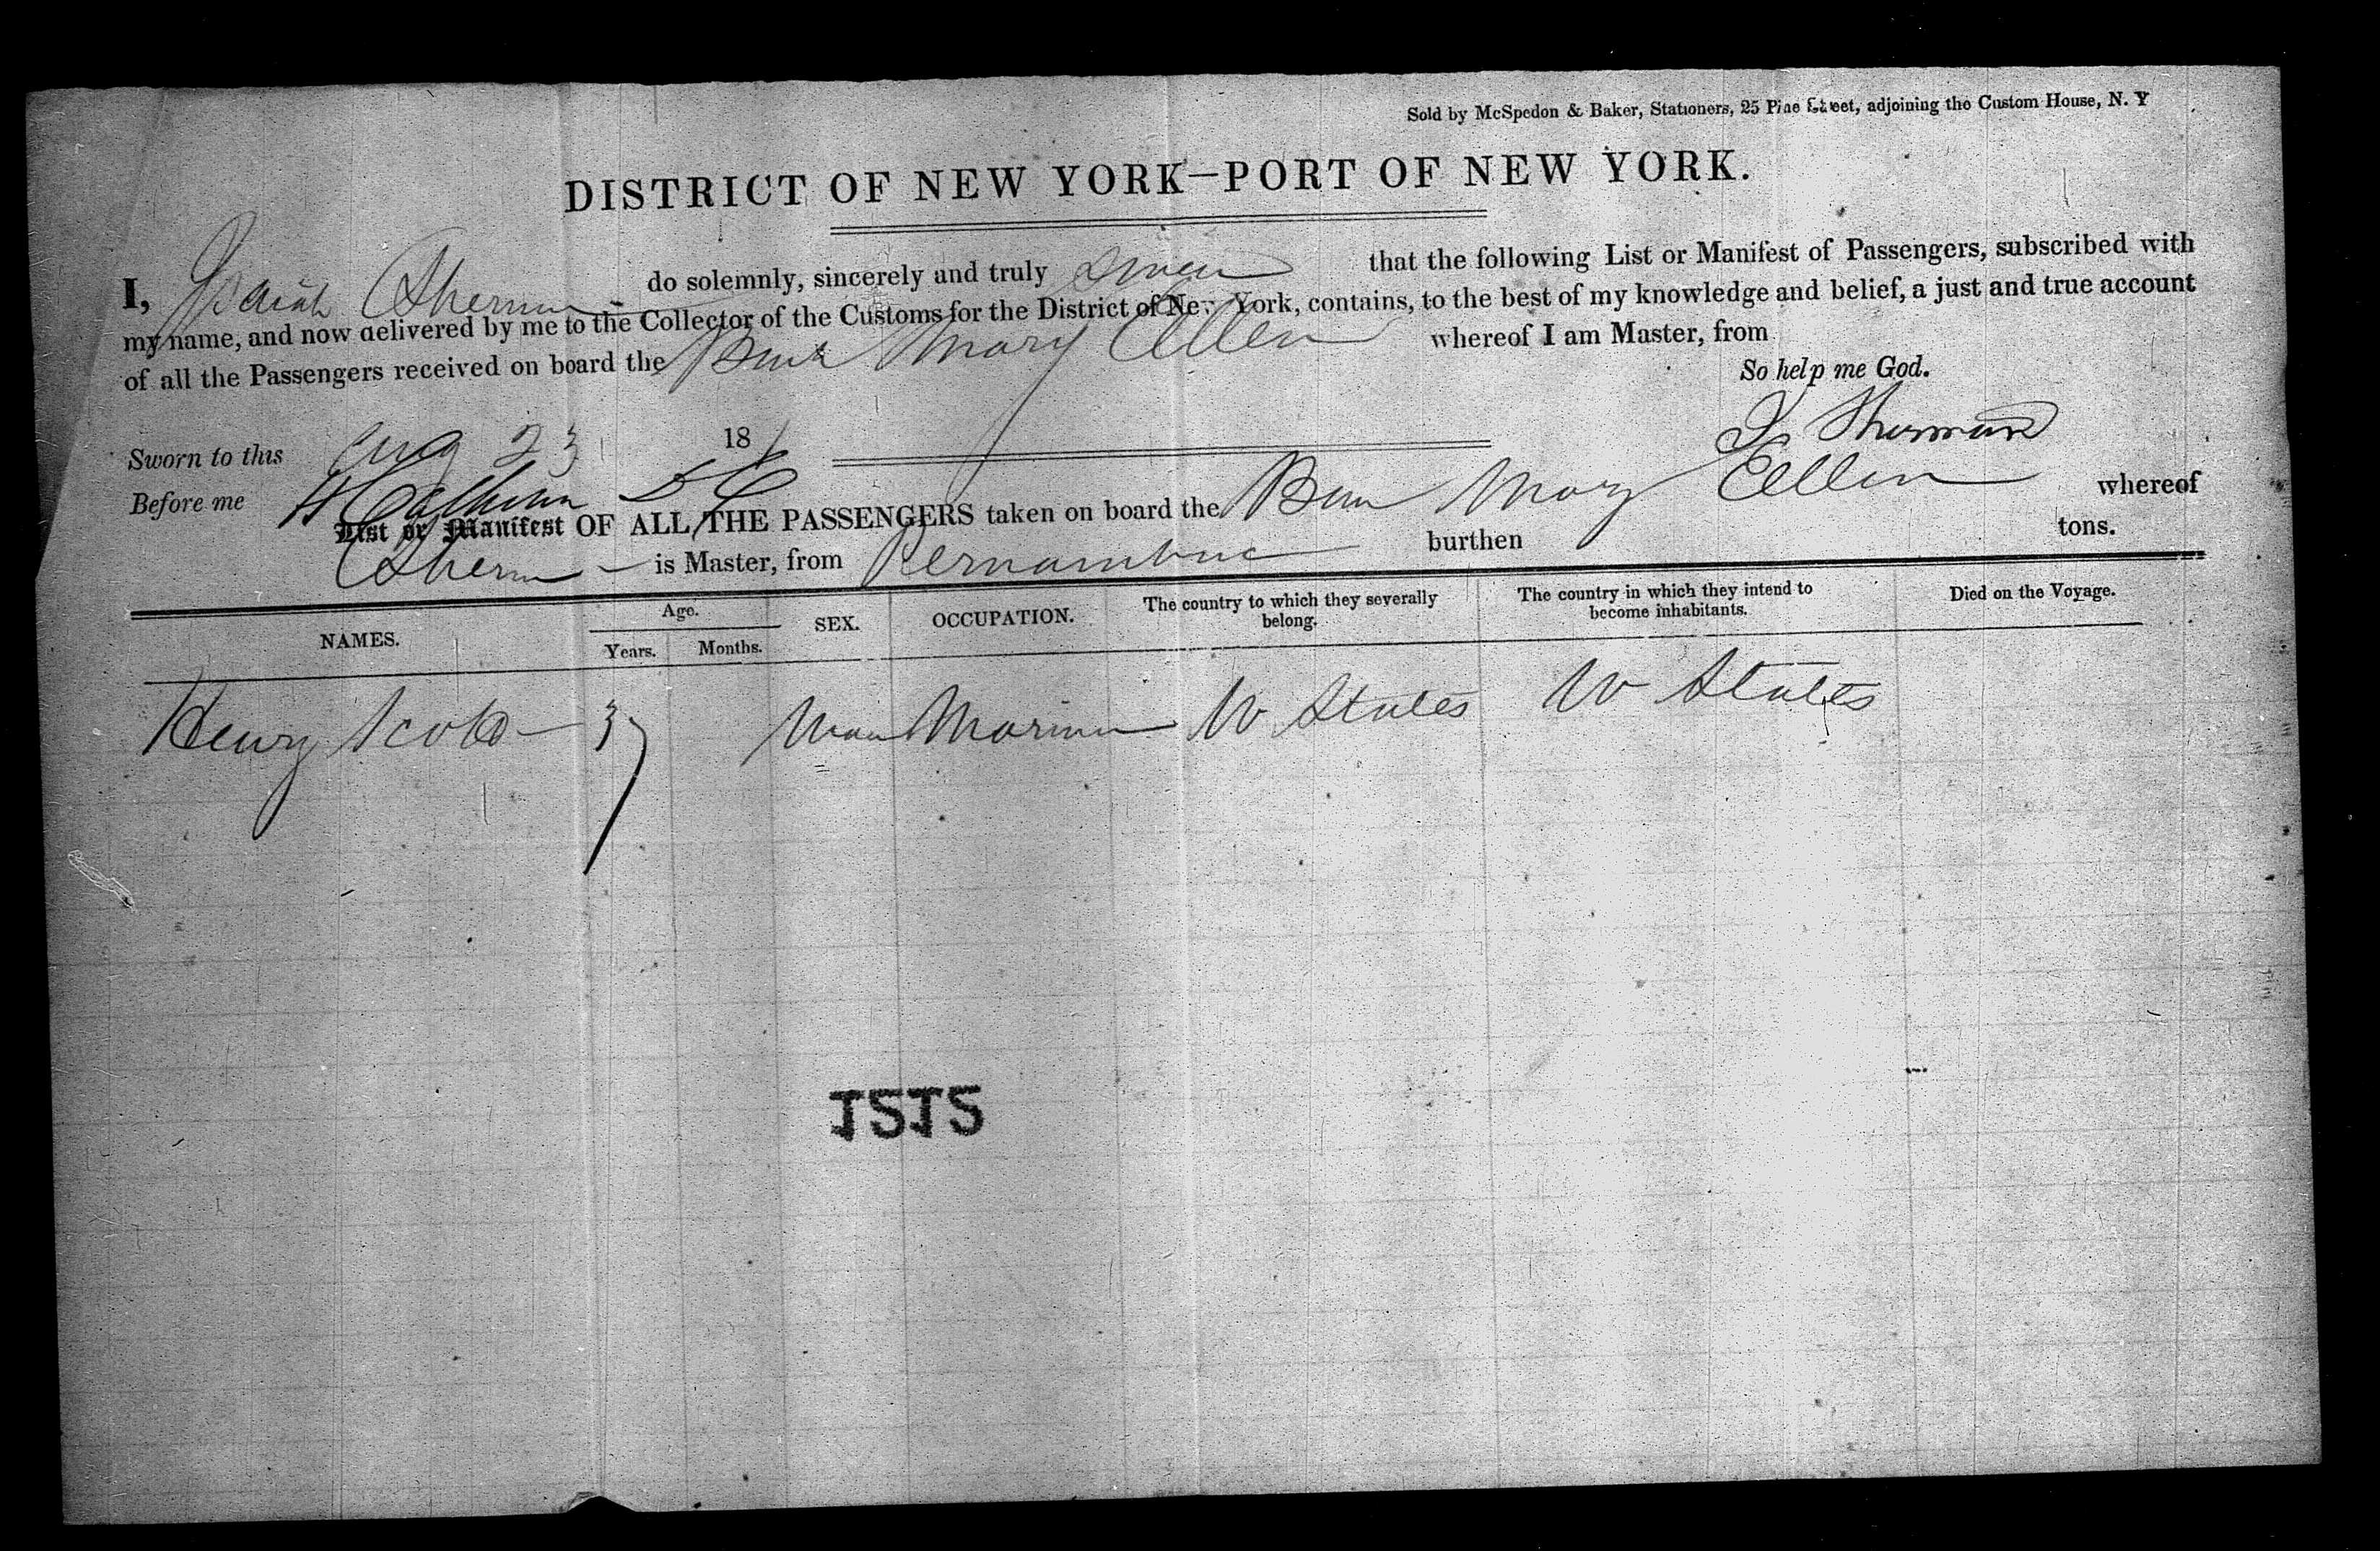 Sold by McSpedon & Baker, Stationers, 25 Pine Street, adjoining the Custom House, N. Y
DISTRICT OF NEW YORK—PORT OF NEW YORK.
I, Isaiah Sherman do solemnly, sincerely and truly swear that the following List or Manifest of Passengers, subscribed with
my name, and now delivered by me to the Collector of the Customs for the District of New York, contains, to the best of my knowledge and belief, a just and true account
of all the Passengers received on board the Mary Ellen whereof I am Master, from
So help me God.
Sworn to this Aug 23 18
I Sherman
Before me Calhoun
List or Manifest OF ALL THE PASSENGERS taken on board the Mary Ellen whereof
Sherman is Master, from Pernambuc burthen tons.
NAMES. Age. Years. Months. SEX. OCCUPATION. The country to which they severally belong. The country in which they intend to become inhabitants. Died on the Voyage.
Henry Scott 37 Man Mariner U States U States